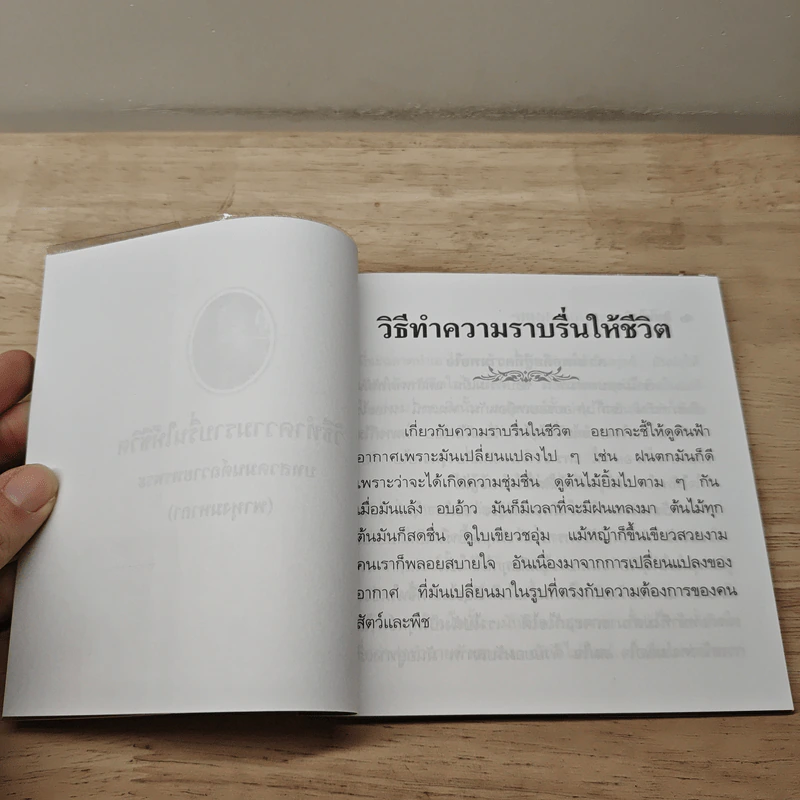 วิธีทำความราบรื่นให้ชีวิต
เกี่ยวกับความราบรื่นในชีวิต อยากจะชี้ให้ดูดินฟ้า
อากาศเพราะมันเปลี่ยนแปลงไป ๆ เช่น ฝนตกมันก็ดี
เพราะว่าจะได้เกิดความชุ่มชื่น ดูต้นไม้ยิ้มไปตาม ๆ กัน
เมื่อมันแล้ง อบอ้าว มันก็มีเวลาที่จะมีฝนเทลงมา ต้นไม้ทุก
ต้นมันก็สดชื่น ดูใบเขียวชอุ่ม แม้หญ้าก็ขึ้นเขียวสวยงาม
คนเราก็พลอยสบายใจ อันเนื่องมาจากการเปลี่ยนแปลงของ
อากาศ ที่มันเปลี่ยนมาในรูปที่ตรงกับความต้องการของคน
สัตว์และพืช